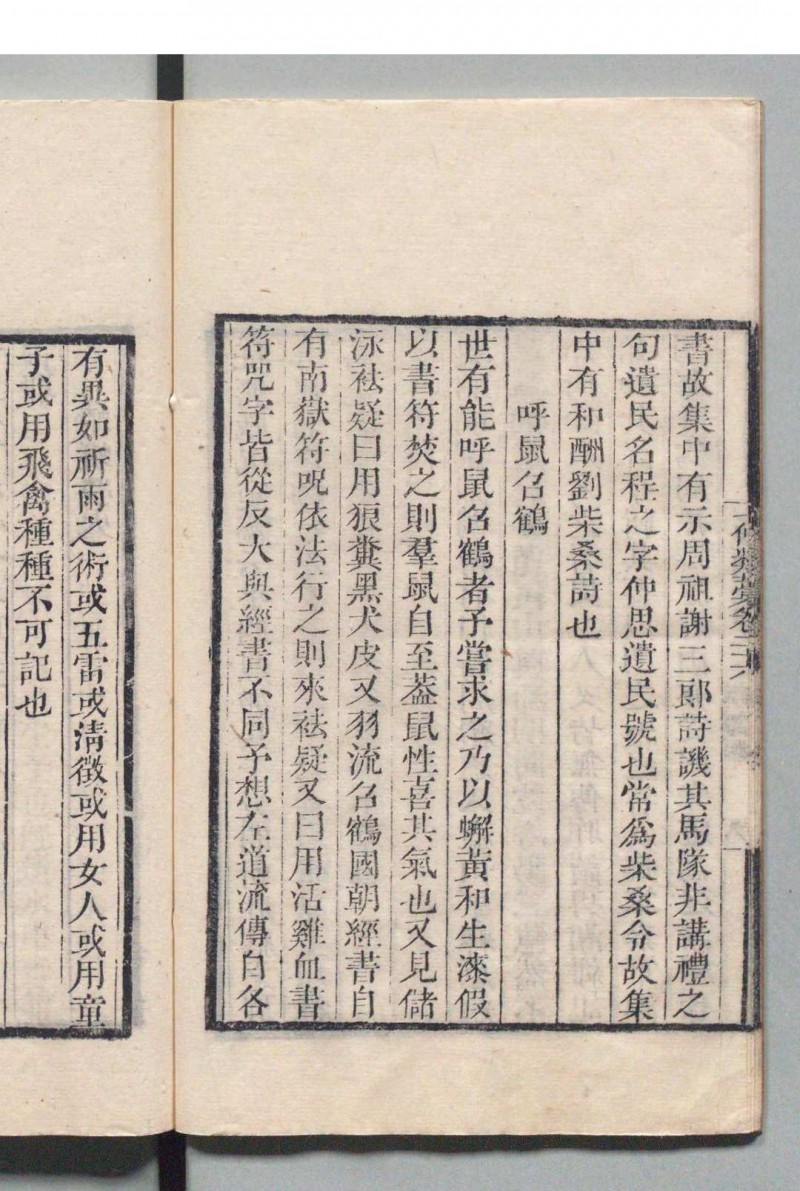 七修類藁卷二六
書故集中有示周祖謝三郎詩譏其馬隊非講禮之
句遺民名程之字仲思遺民號也常為柴桑令故集
中有和酬劉柴桑詩也
呼鼠召鶴
世有能呼鼠召鶴者予嘗求之乃以蠏黃和生漆假
以書符焚之則羣鼠自至葢鼠性喜其氣也又見儲
泳袪疑曰用狼糞黑犬皮又羽流召鶴國朝經書自
有南嶽符呪依法行之則來袪疑又曰用活雞血書
符咒字皆從反大與經書不同予想左道流傳自各
有異如祈雨之術或五雷或清徵或用女人或用童
子或用飛禽種種不可記也